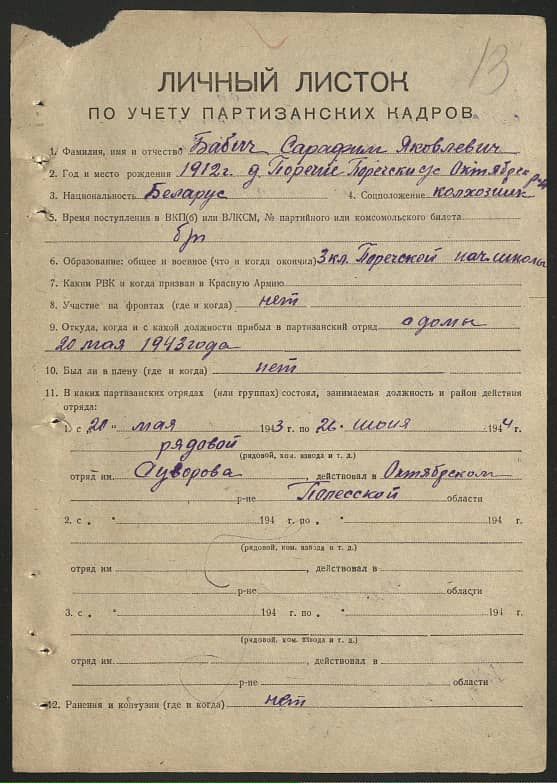 13
ЛИЧНЫЙ ЛИСТОК
ПО УЧЕТУ ПАРТИЗАНСКИХ КАДРОВ
1. Фамилия, имя и отчество Бабич Сарафим Яковлевич
2. Год и место рождения 1912 г. д. Поречье Поречский с/с Октябрьск р-на
3. Национальность Беларус 4. Соцположение колхозник
5. Время поступления в ВКП(б) или ВЛКСМ, № партийного или комсомольского билета
б/п
6. Образование: общее и военное (что и когда окончил) 3 кл. Поречской нач. школы
7. Каким РВК и когда призван в Красную Армию
8. Участие на фронтах (где и когда) нет
9. Откуда, когда и с какой должности прибыл в партизанский отряд с дома
20 мая 1943 года
10. Был ли в плену (где и когда) нет
11. В каких партизанских отрядах (или группах) состоял, занимаемая должность и район действия
отряда:
1. с „20" мая 1943 г. по 26. июня 1944 г.
рядовой
(рядовой, ком. взвода и т. д.)
отряд им. Суворова, действовал в Октябрьском
р-не Полесской области
2. с „ " 194 г. по „ " 194 г.
(рядовой, ком. взвода и т. д.)
отряд им , действовал в
р-не области
3. с „ " 194 г. по „ " 194 г.
(рядовой, ком. взвода и т. д.)
отряд им. , действовал в
р-не области
12. Ранения и контузии (где и когда) нет